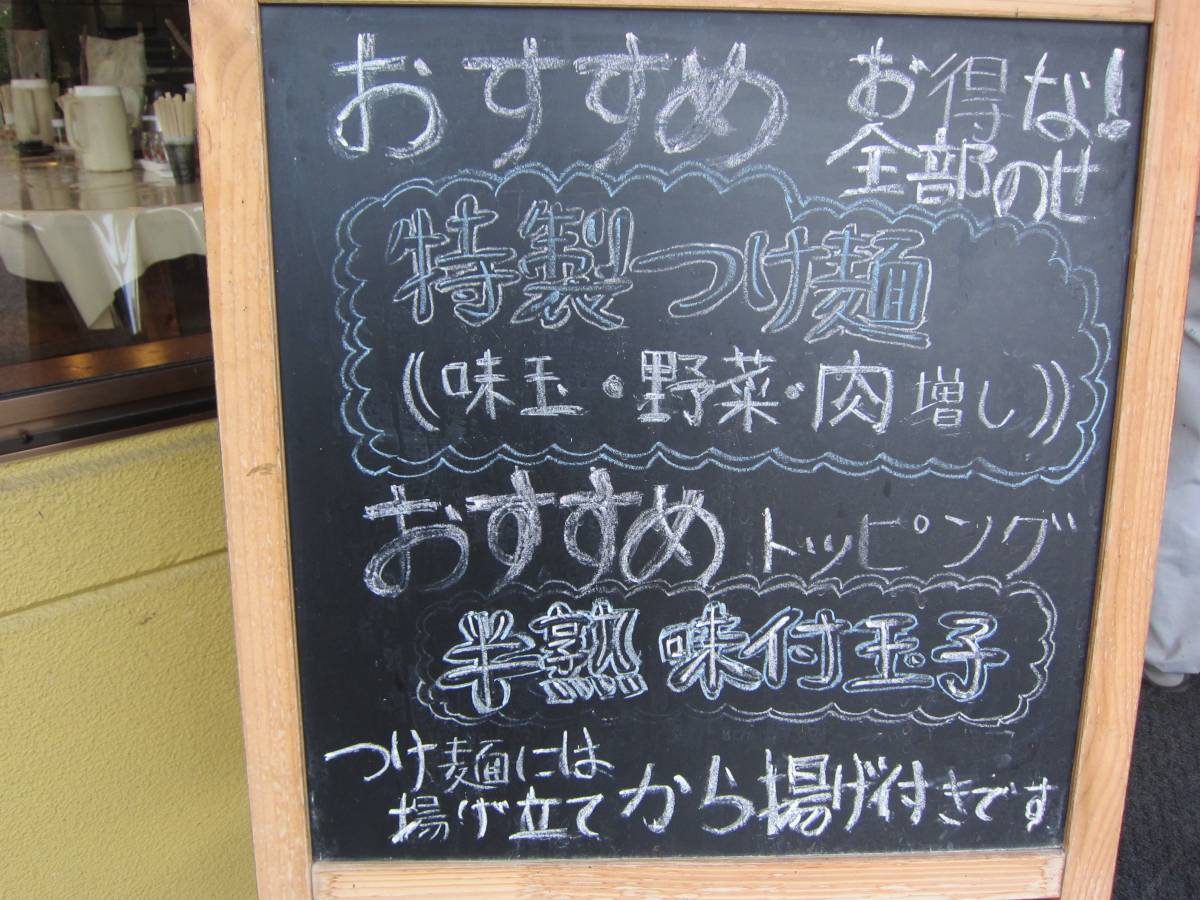 おすすめ
お得な!
全部のせ
特製つけ麺
((味玉・野菜・肉増し))
おすすめトッピング
半熟 味付玉子
つけ麺には
揚げ立てから揚げ付きです